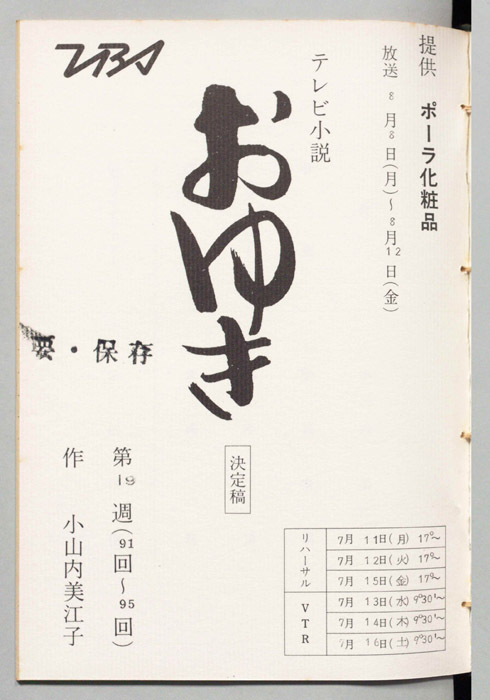 提供 ポーラ化粧品
放送 8月8日(月)~8月12日(金)
テレビ小説
おゆき
TBS
要・保存
決定稿
第19週(91回~95回)
作 小山内美江子
リハーサル
7月 11日(月) 17°~
7月 12日(火) 17°~
7月 15日(金) 17°~
VTR
7月 13日(水) 9°30'~
7月 14日(木) 9°30'~
7月 16日(土) 9°30'~